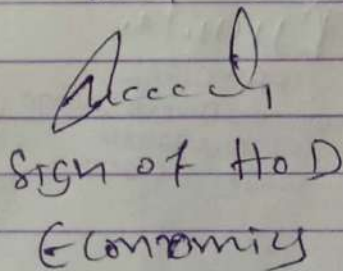 Sign of HoD
Economics